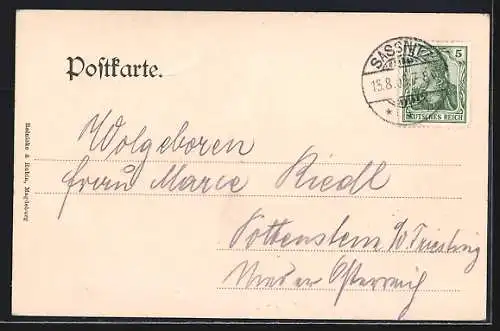 Postkarte.
SASSNITZ
15.8.
5
DEUTSCHES REICH
Wolgeboren
frau Marie Riedl
Pottenstein a/d Triesting
Nieder Österreich
Reinicke & Rubin, Magdeburg